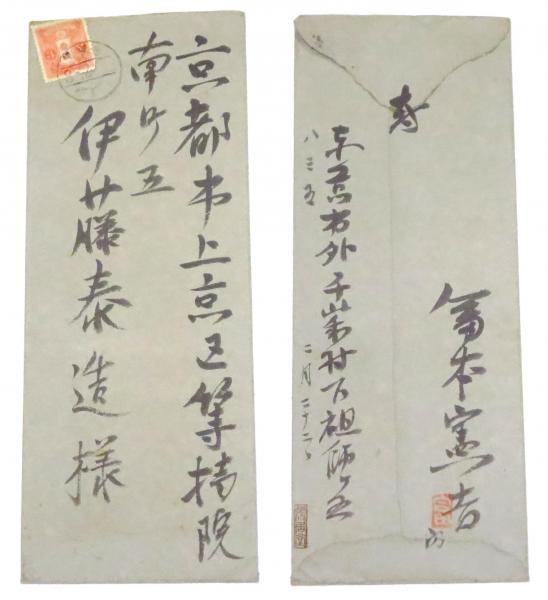 京都市上京区等持院
南町五
伊藤泰造様
封
富本憲吉
東京市外千歳村下祖師谷
八三五
二月二十二日